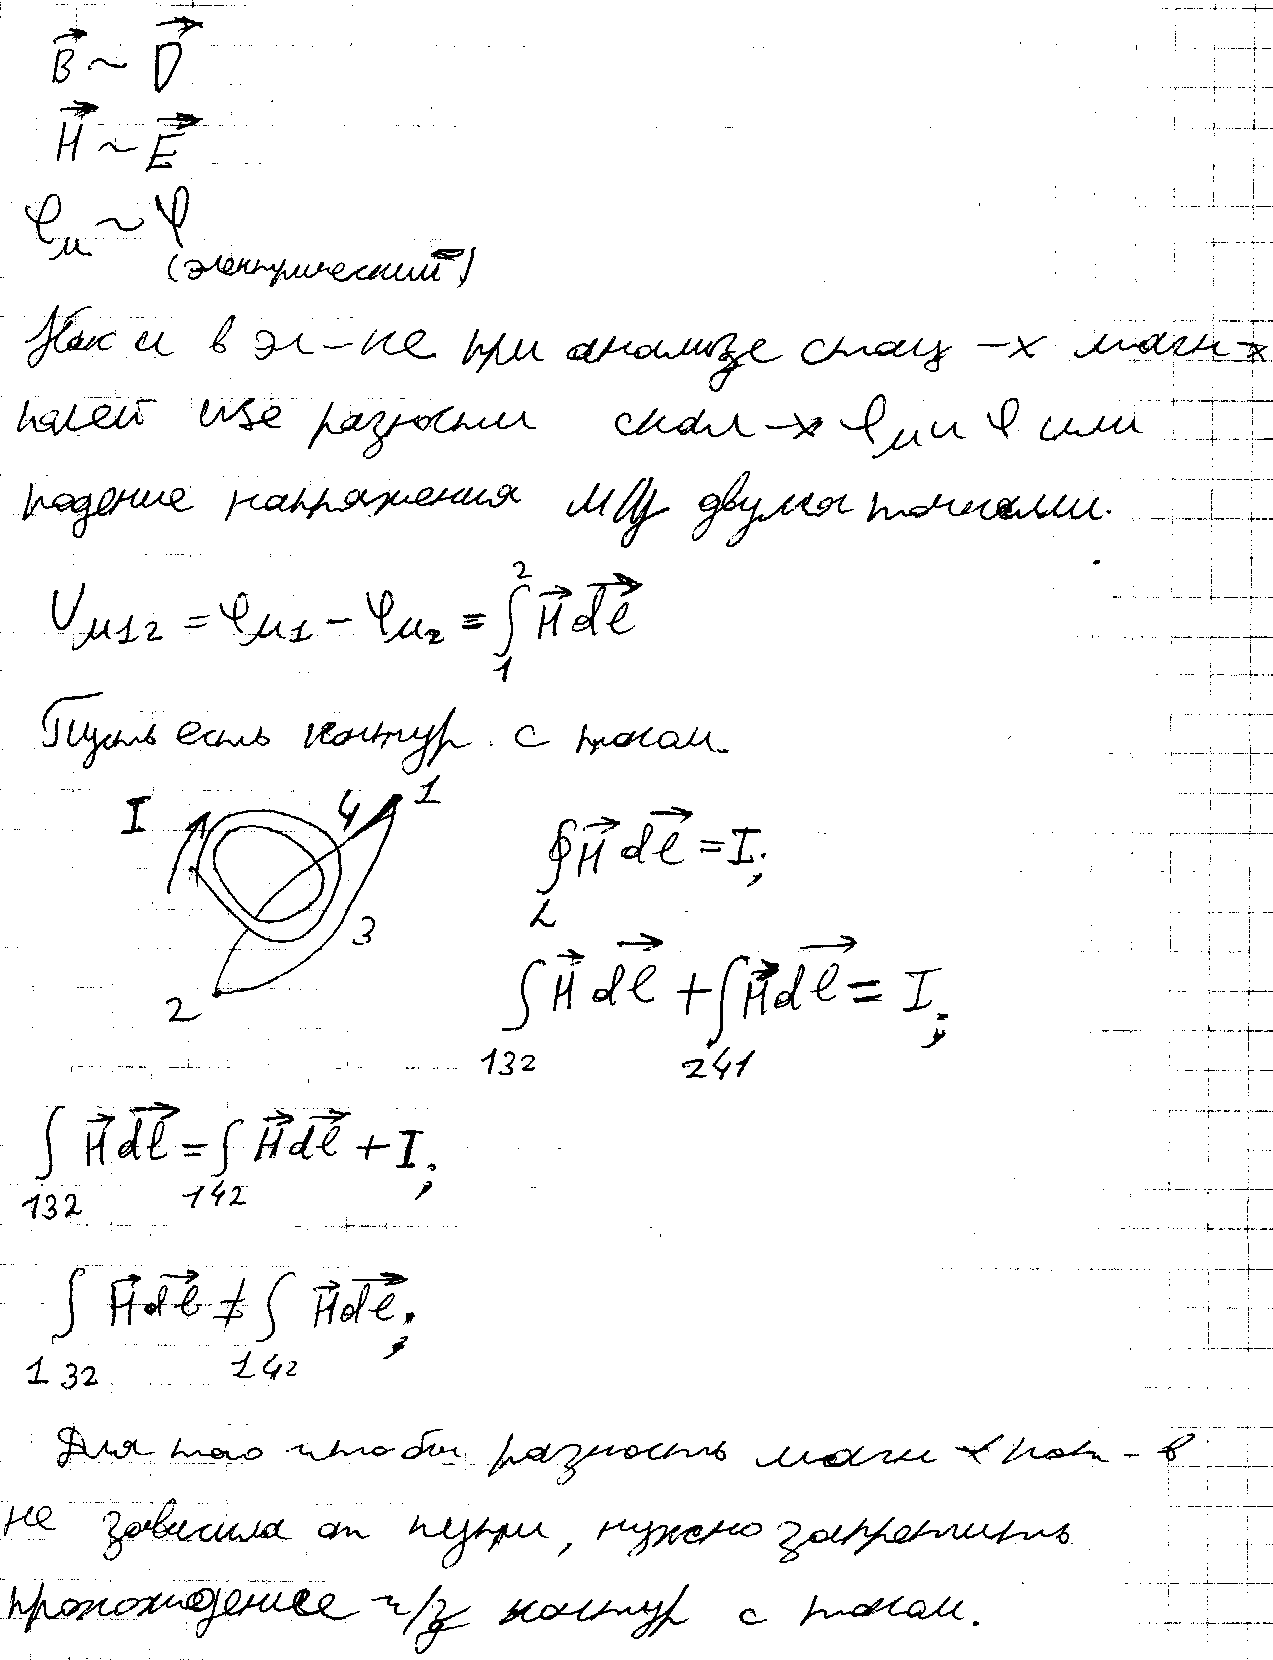 B⃗ ~ D⃗
H⃗ ~ E⃗
φм ~ φ
(электрический)
Как и в эл-ке при анализе стац-х магн-х
полей исе разности скал-х φм и φ или
падение напряжения м/у двумя точками.
Uм12 = φм1 - φм2 = ∫₁² H⃗ dl⃗
Пусть есть контур с током.
I 4 1
3
2
∮_L H⃗ dl⃗ = I;
∫₁₃₂ H⃗ dl⃗ + ∫₂₄₁ H⃗ dl⃗ = I;
∫₁₃₂ H⃗ dl⃗ = ∫₁₄₂ H⃗ dl⃗ + I;
∫₁₃₂ H⃗ dl⃗ ≠ ∫₁₄₂ H⃗ dl⃗;
Для того чтобы разность магн-х пот-в
не зависила от пути, нужно запретить
прохождение ч/з контур с током.